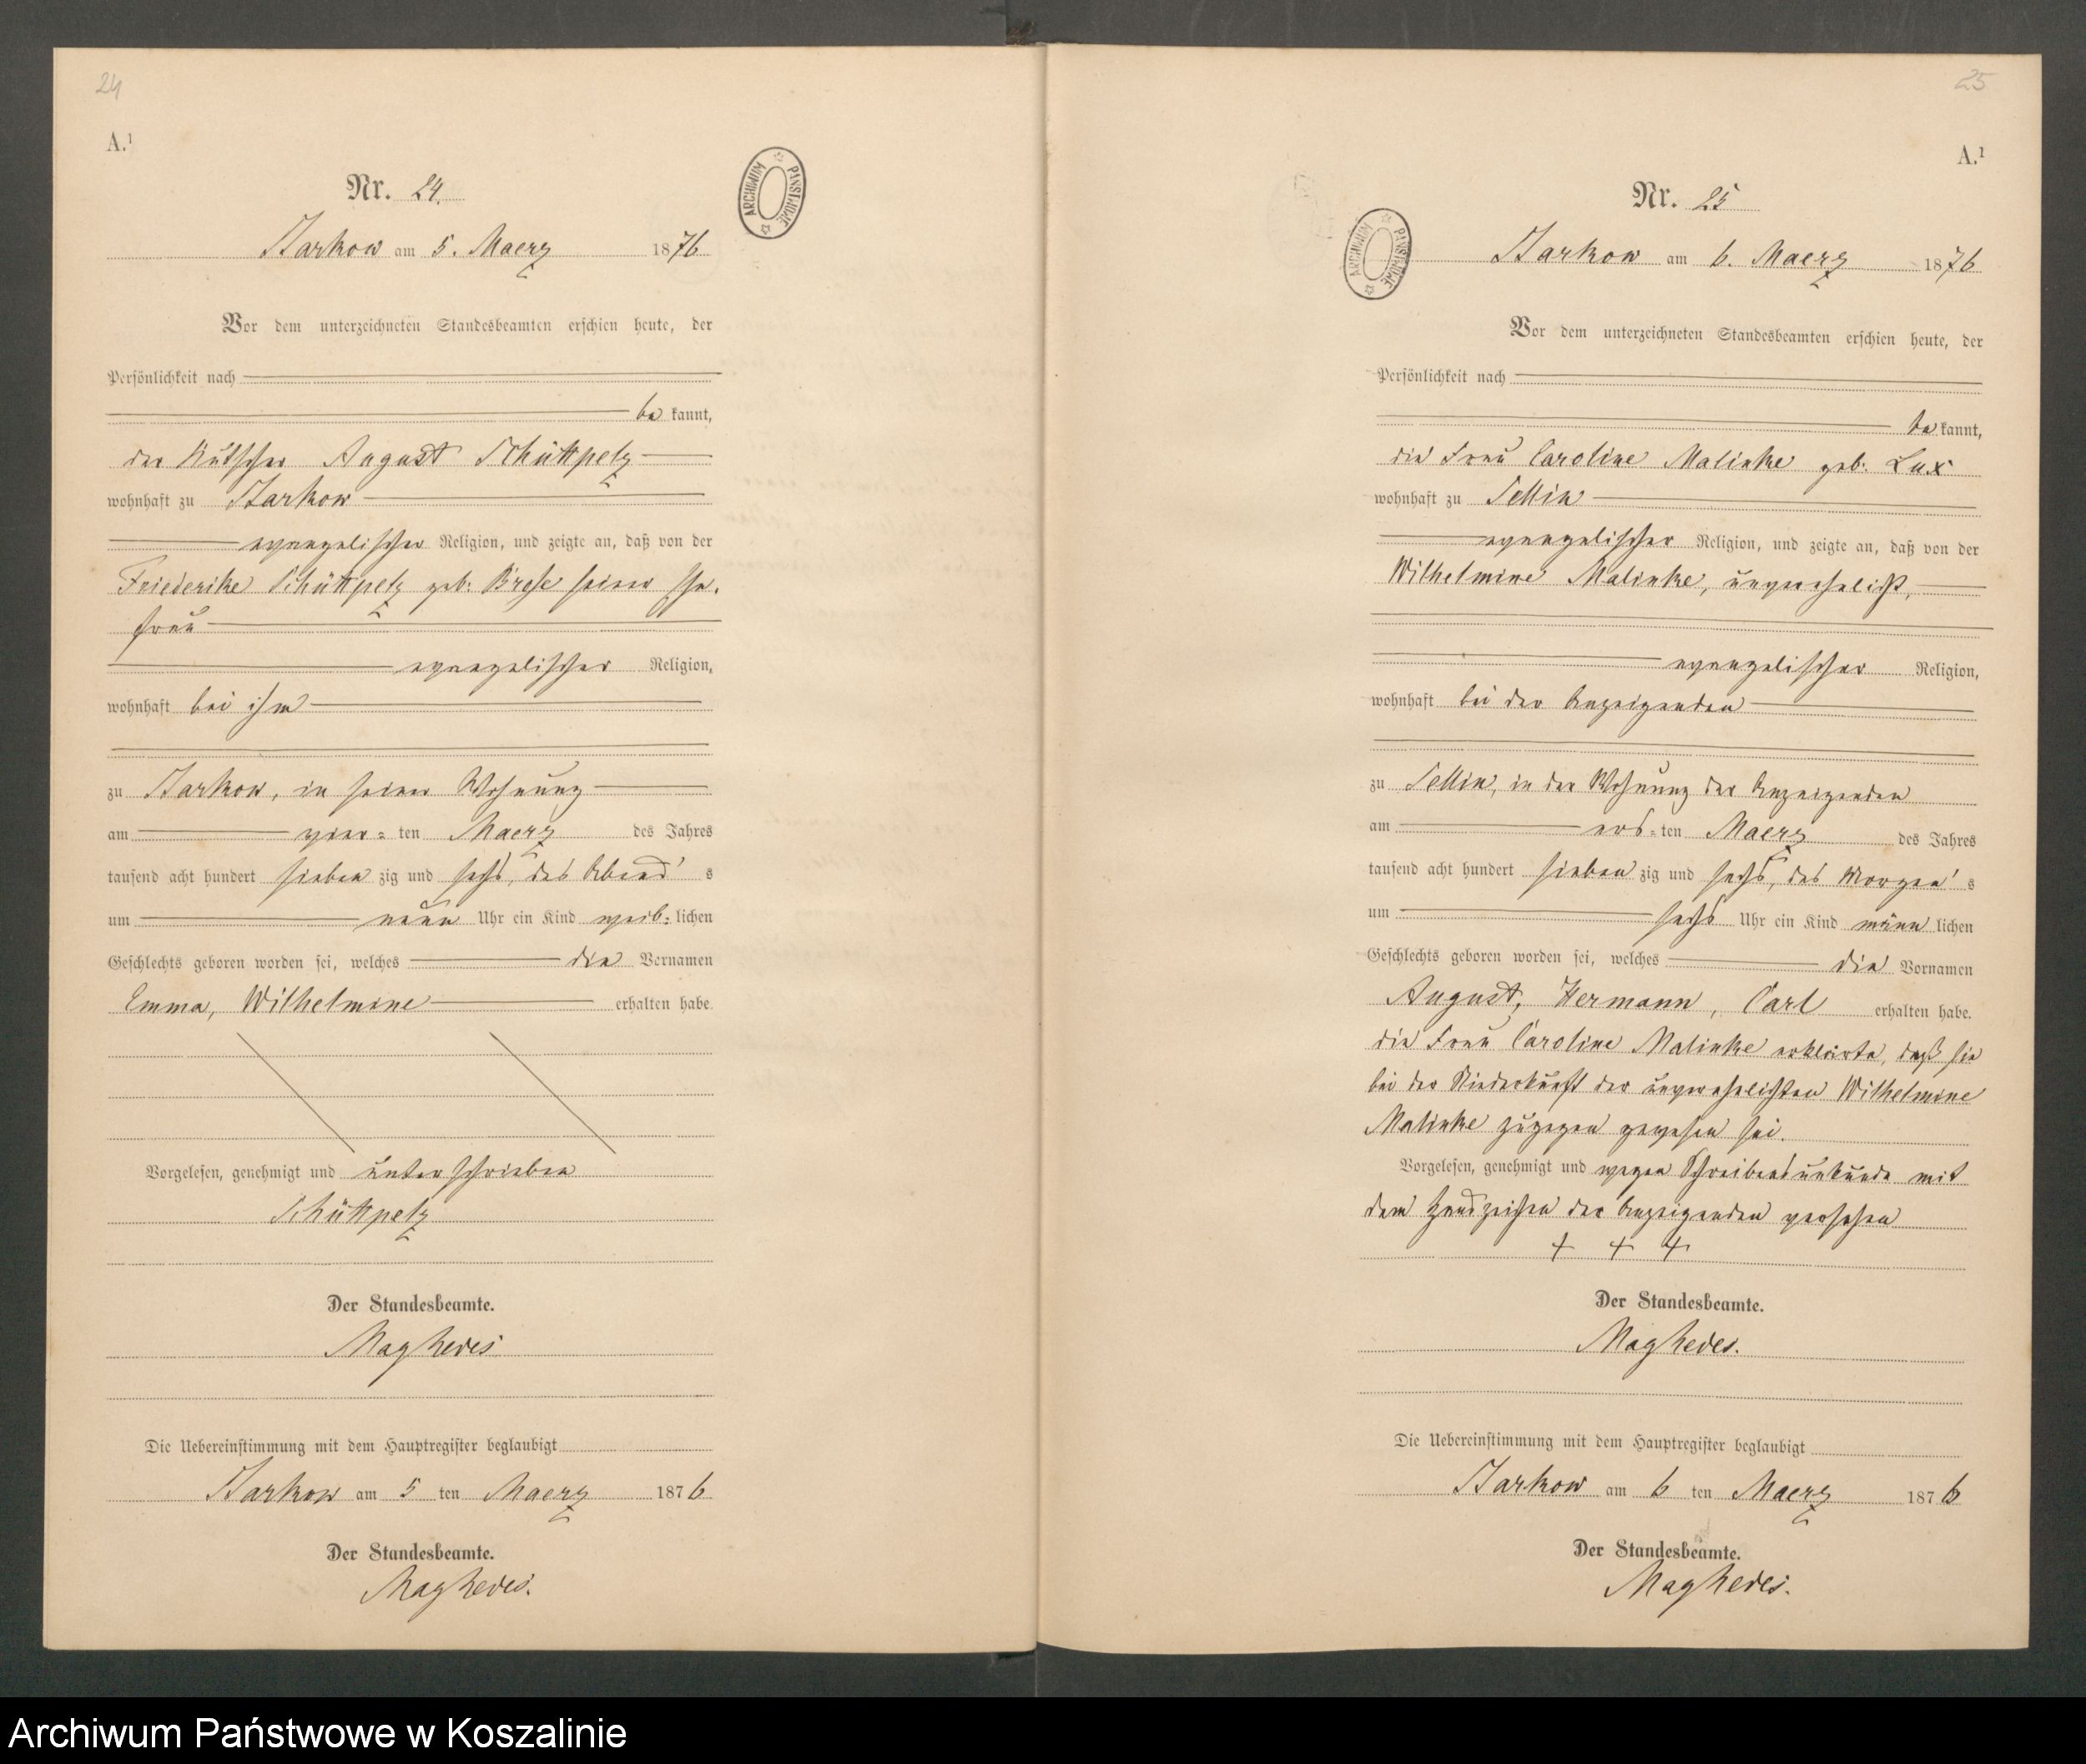 24
A.¹
Nr. 24.
ARCHIWUM PAŃSTWOWE
Starkow am 5. Maerz 1876
Vor dem unterzeichneten Standesbeamten erschien heute, der
Persönlichkeit nach
be kannt,
der Kutscher August Schüttpelz
wohnhaft zu Starkow
evangelischer Religion, und zeigte an, daß von der
Friederike Schüttpelz geb: Brose seiner Ehe-
frau
evangelischer Religion,
wohnhaft bei ihm
zu Starkow, in seiner Wohnung
am vier-ten Maerz des Jahres
tausend acht hundert sieben zig und sechs, des Abend's
um neun Uhr ein Kind weib-lichen
Geschlechts geboren worden sei, welches die Vornamen
Emma, Wilhelmine erhalten habe.
Vorgelesen, genehmigt und unterschrieben
Schüttpelz
Der Standesbeamte.
Die Uebereinstimmung mit dem Hauptregister beglaubigt
Starkow am 5 ten Maerz 1876
Der Standesbeamte.
25
A.¹
Nr. 25
ARCHIWUM PAŃSTWOWE
Starkow am 6. Maerz 1876
Vor dem unterzeichneten Standesbeamten erschien heute, der
Persönlichkeit nach
be kannt,
die Frau Caroline Malinke geb: Lux
wohnhaft zu Sellin
evangelischer Religion, und zeigte an, daß von der
Wilhelmine Malinke, unverehelicht,
evangelischer Religion,
wohnhaft bei der Anzeigenden
zu Sellin, in der Wohnung der Anzeigenden
am ers-ten Maerz des Jahres
tausend acht hundert sieben zig und sechs, des Morgen's
um sechs Uhr ein Kind männ lichen
Geschlechts geboren worden sei, welches die Vornamen
August, Hermann, Carl erhalten habe.
die Frau Caroline Malinke erklärte, daß sie
bei der Niederkunft der unverehelichten Wilhelmine
Malinke zugegen gewesen sei.
Vorgelesen, genehmigt und wegen Schreibensunkunde mit
dem Handzeichen der Anzeigenden versehen
+ + +
Der Standesbeamte.
Die Uebereinstimmung mit dem Hauptregister beglaubigt
Starkow am 6 ten Maerz 1876
Der Standesbeamte.
Archiwum Państwowe w Koszalinie